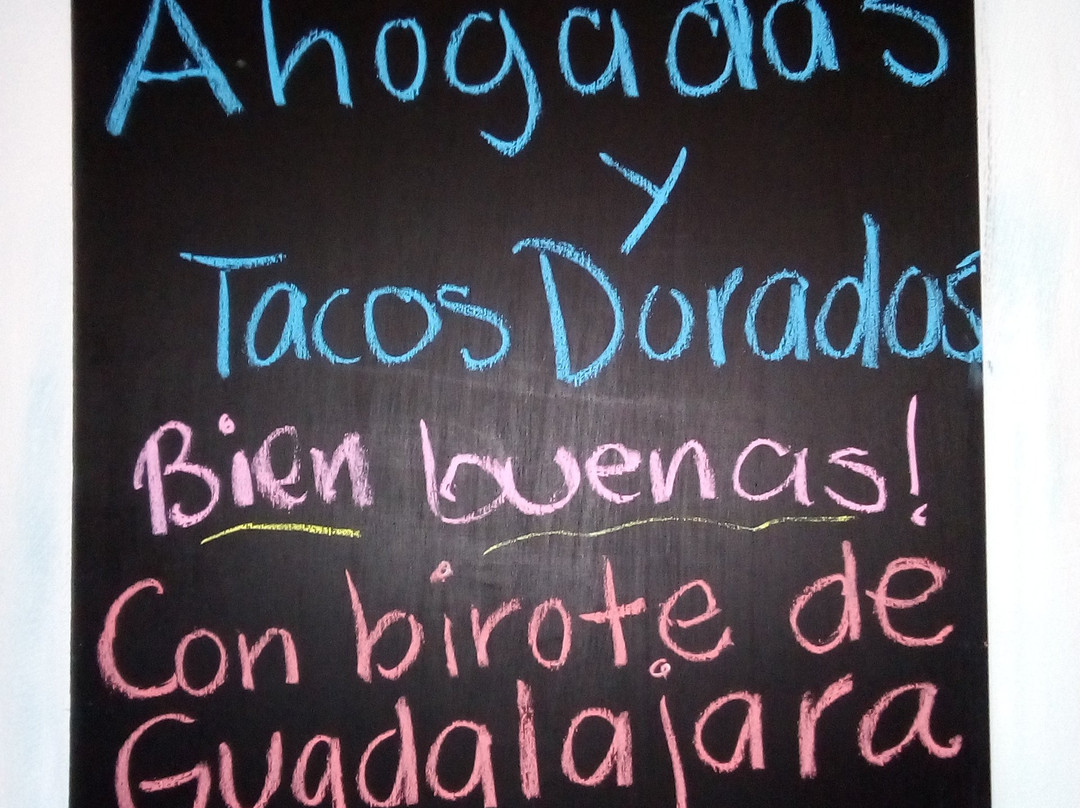 Ahogadas
y
Tacos Dorados
Bien buenas!
Con birote de
Guadalajara